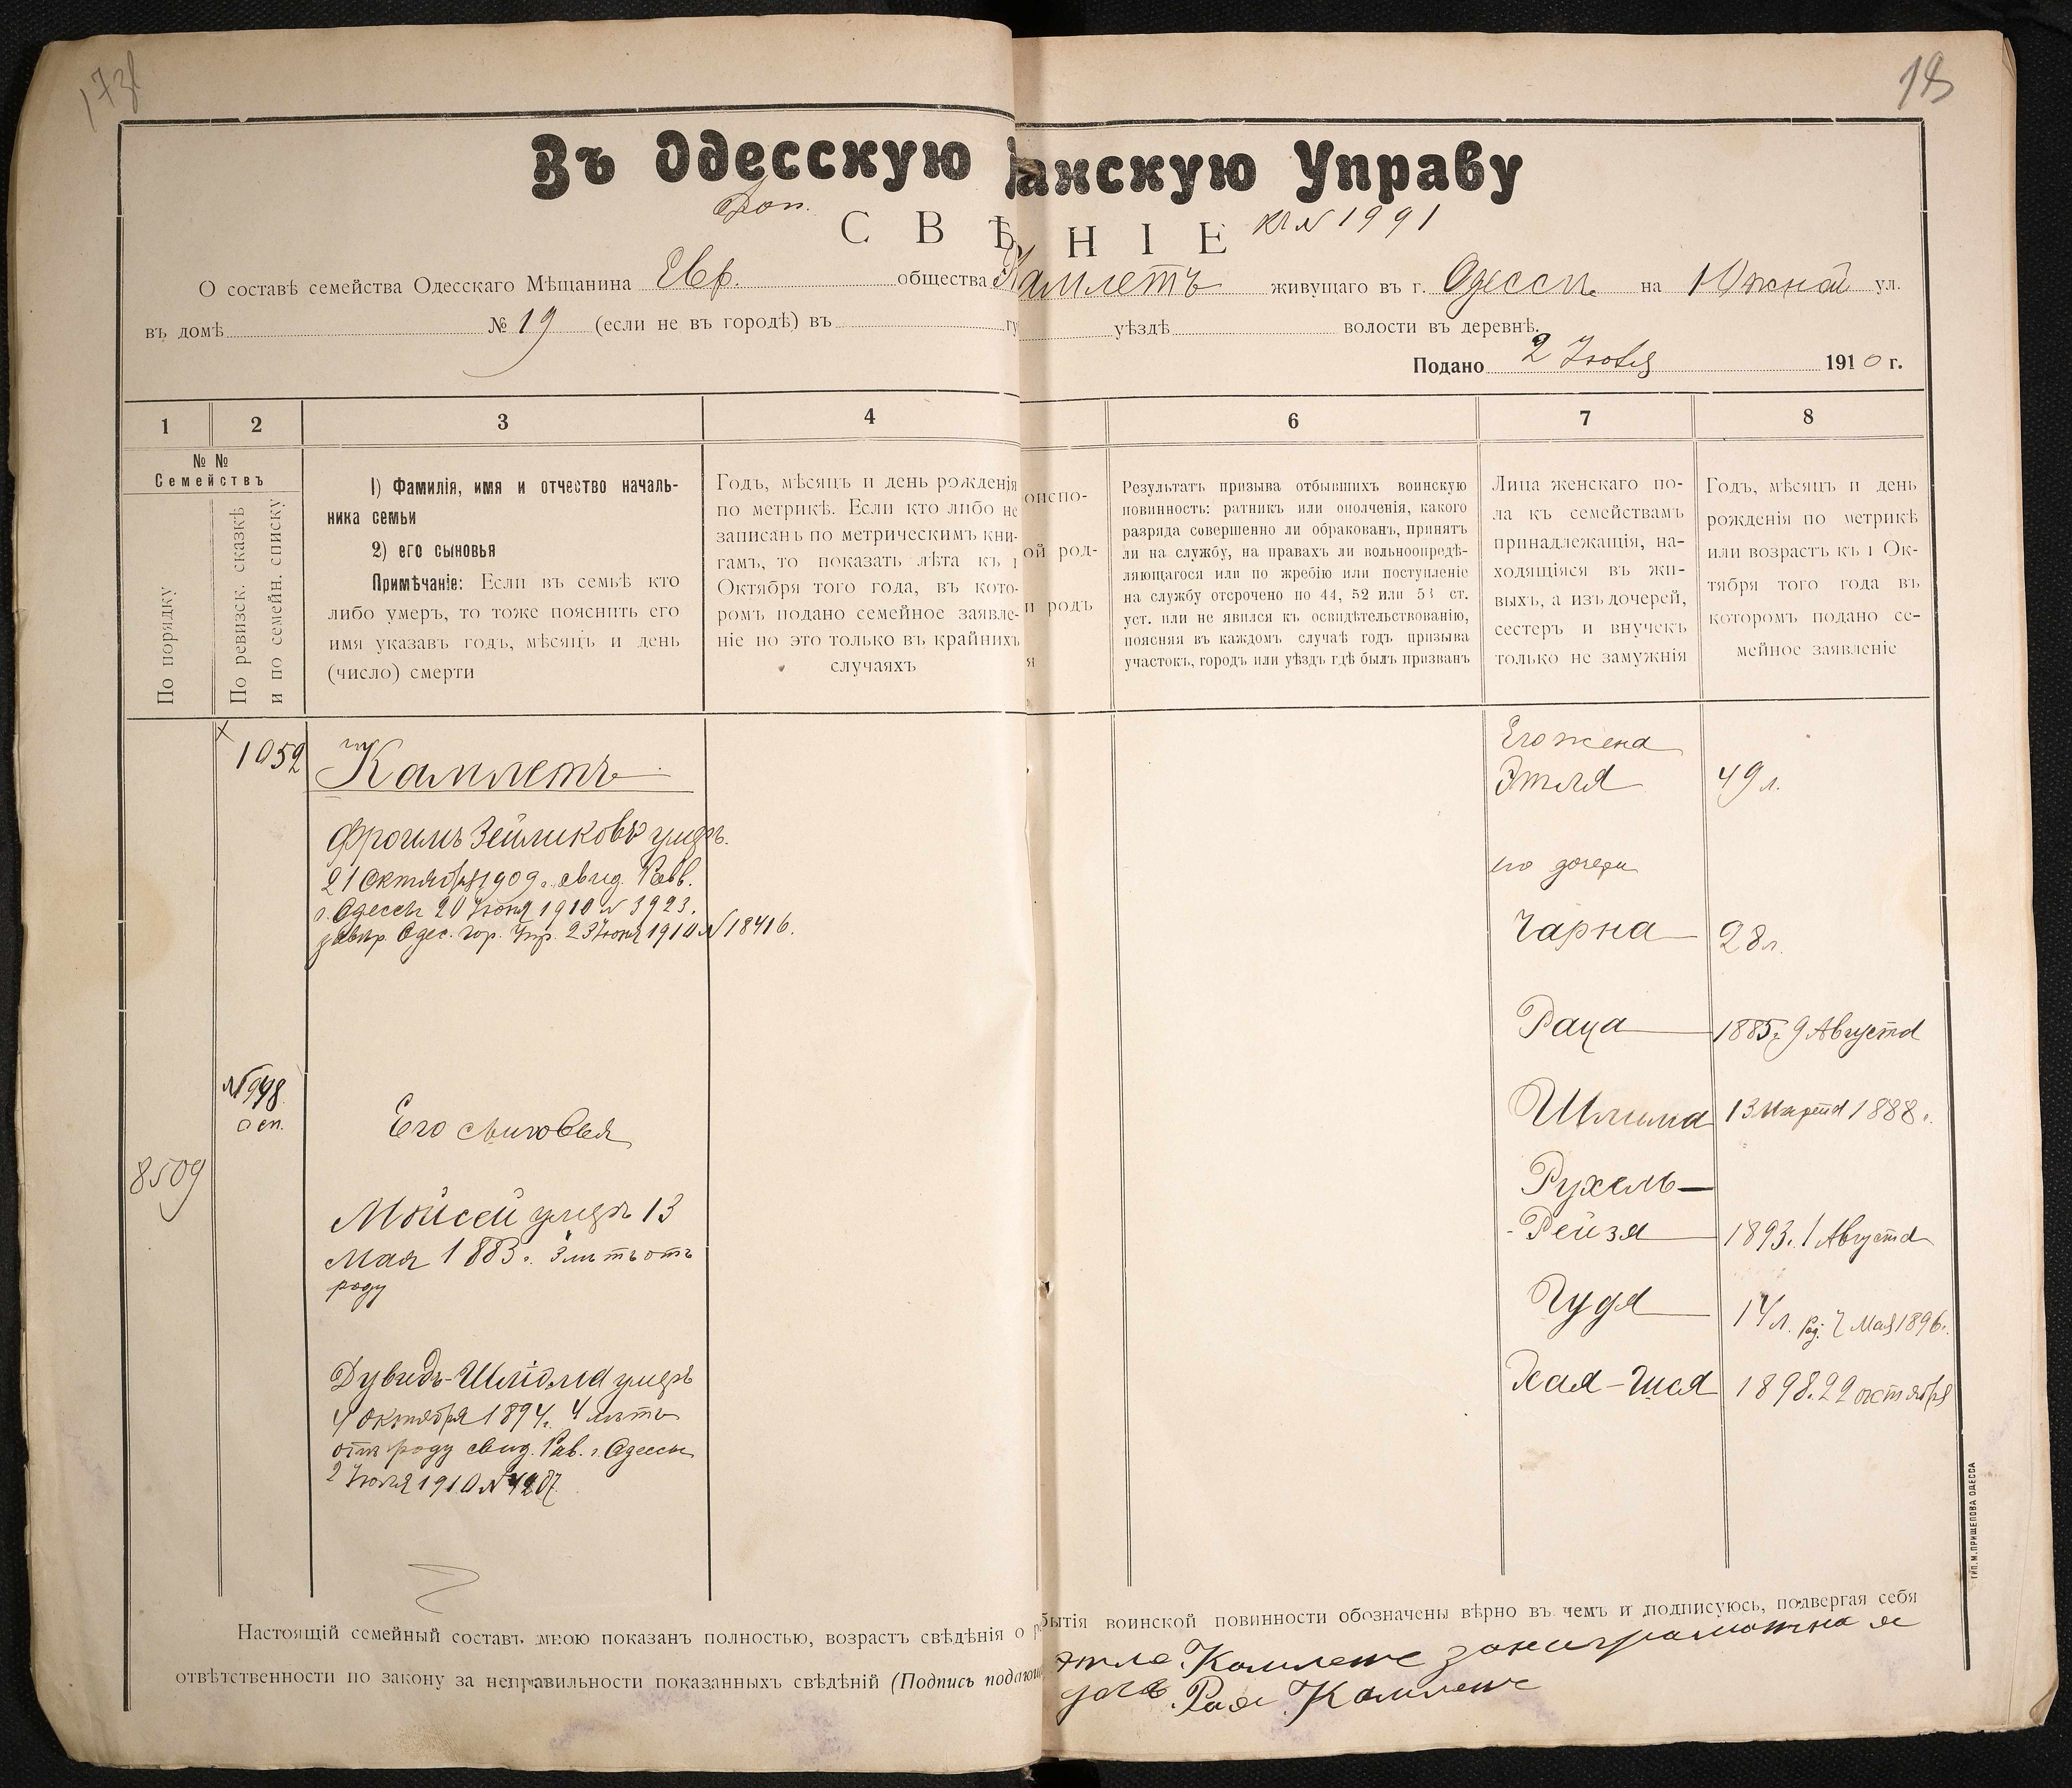 18
Въ Одесскую
анскую Управу
Доп.
С В Ѣ
Н І Е
№ 1991
О составѣ семейства Одесскаго Мѣщанина Евр. общества
Камлетъ живущаго въ г. Одессѣ на Южной ул.
въ домѣ № 19 (если не въ городѣ) въ
гу
уѣздѣ волости въ деревнѣ.
Подано 2 Іюля 1910 г.
1 2 3 4
6 7 8
№ №
Семействъ
По порядку
По ревизск. сказкѣ
и по семейн. списку
1) Фамилія, имя и отчество началь-
ника семьи
2) его сыновья
Примѣчаніе: Если въ семьѣ кто
либо умеръ, то тоже пояснить его
имя указавъ годъ, мѣсяцъ и день
(число) смерти
Годъ, мѣсяцъ и день рожденія
по метрикѣ. Если кто либо не
записанъ по метрическимъ кни-
гамъ, то показать лѣта къ 1
Октября того года, въ кото-
ромъ подано семейное заявле-
ніе но это только въ крайнихъ
случаяхъ
оиспо-
ой род-
и родъ
я
Результатъ призыва отбывшихъ воинскую
повинность: ратникъ или ополченія, какого
разряда совершенно ли обракованъ, принятъ
ли на службу, на правахъ ли вольноопредѣ-
ляющагося или по жребію или поступленіе
на службу отсрочено по 44, 52 или 53 ст.
уст. или не явился къ освидѣтельствованію,
поясняя въ каждомъ случаѣ годъ призыва
участокъ, городъ или уѣздъ гдѣ былъ призванъ
Лица женскаго по-
ла къ семействамъ
принадлежащія, на-
ходящіяся въ жи-
выхъ, а изъ дочерей,
сестеръ и внучекъ
только не замужнія
Годъ, мѣсяцъ и день
рожденія по метрикѣ
или возрастъ къ 1 Ок-
тября того года въ
которомъ подано се-
мейное заявленіе
1052
Камлетъ
Фроимъ Зейликовъ умеръ
21 Октября 1909 г. свид. Равв.
г. Одессы 20 Іюня 1910 № 3923.
завѣр. Одес. гор. Упр. 23 Іюня 1910 № 18416.
№ 998
8509
Его сыновья
Мойсей умеръ 13
Мая 1883 г. 3 лѣтъ отъ
роду
Дувидъ-Шлёма умеръ
4 октября 1894 г. 4 лѣтъ
отъ роду свид. Рав. г. Одессы
2 Іюля 1910 № 4287.
Его жена
Этля 49 л.
его дочери
Чарна 28 л.
Раца 1885 г. 9 Августа
Шлима 13 Марта 1888 г.
Рухель-
-Рейзя 1893. 1 Августа
Гудя 14 л. род. 7 Мая 1896 г.
Хая-Гися 1898. 22 октября
Настоящій семейный составъ мною показанъ полностью, возрастъ свѣдѣнія о
бытія воинской повинности обозначены вѣрно въ чемъ и подписуюсь, подвергая себя
отвѣтственности по закону за неправильности показанныхъ свѣдѣній (Подпись подающ
Этля Камлетъ за неграмотная
дочь Рая Камлетъ
ТИП. М. ПРИЩЕПОВА ОДЕССА